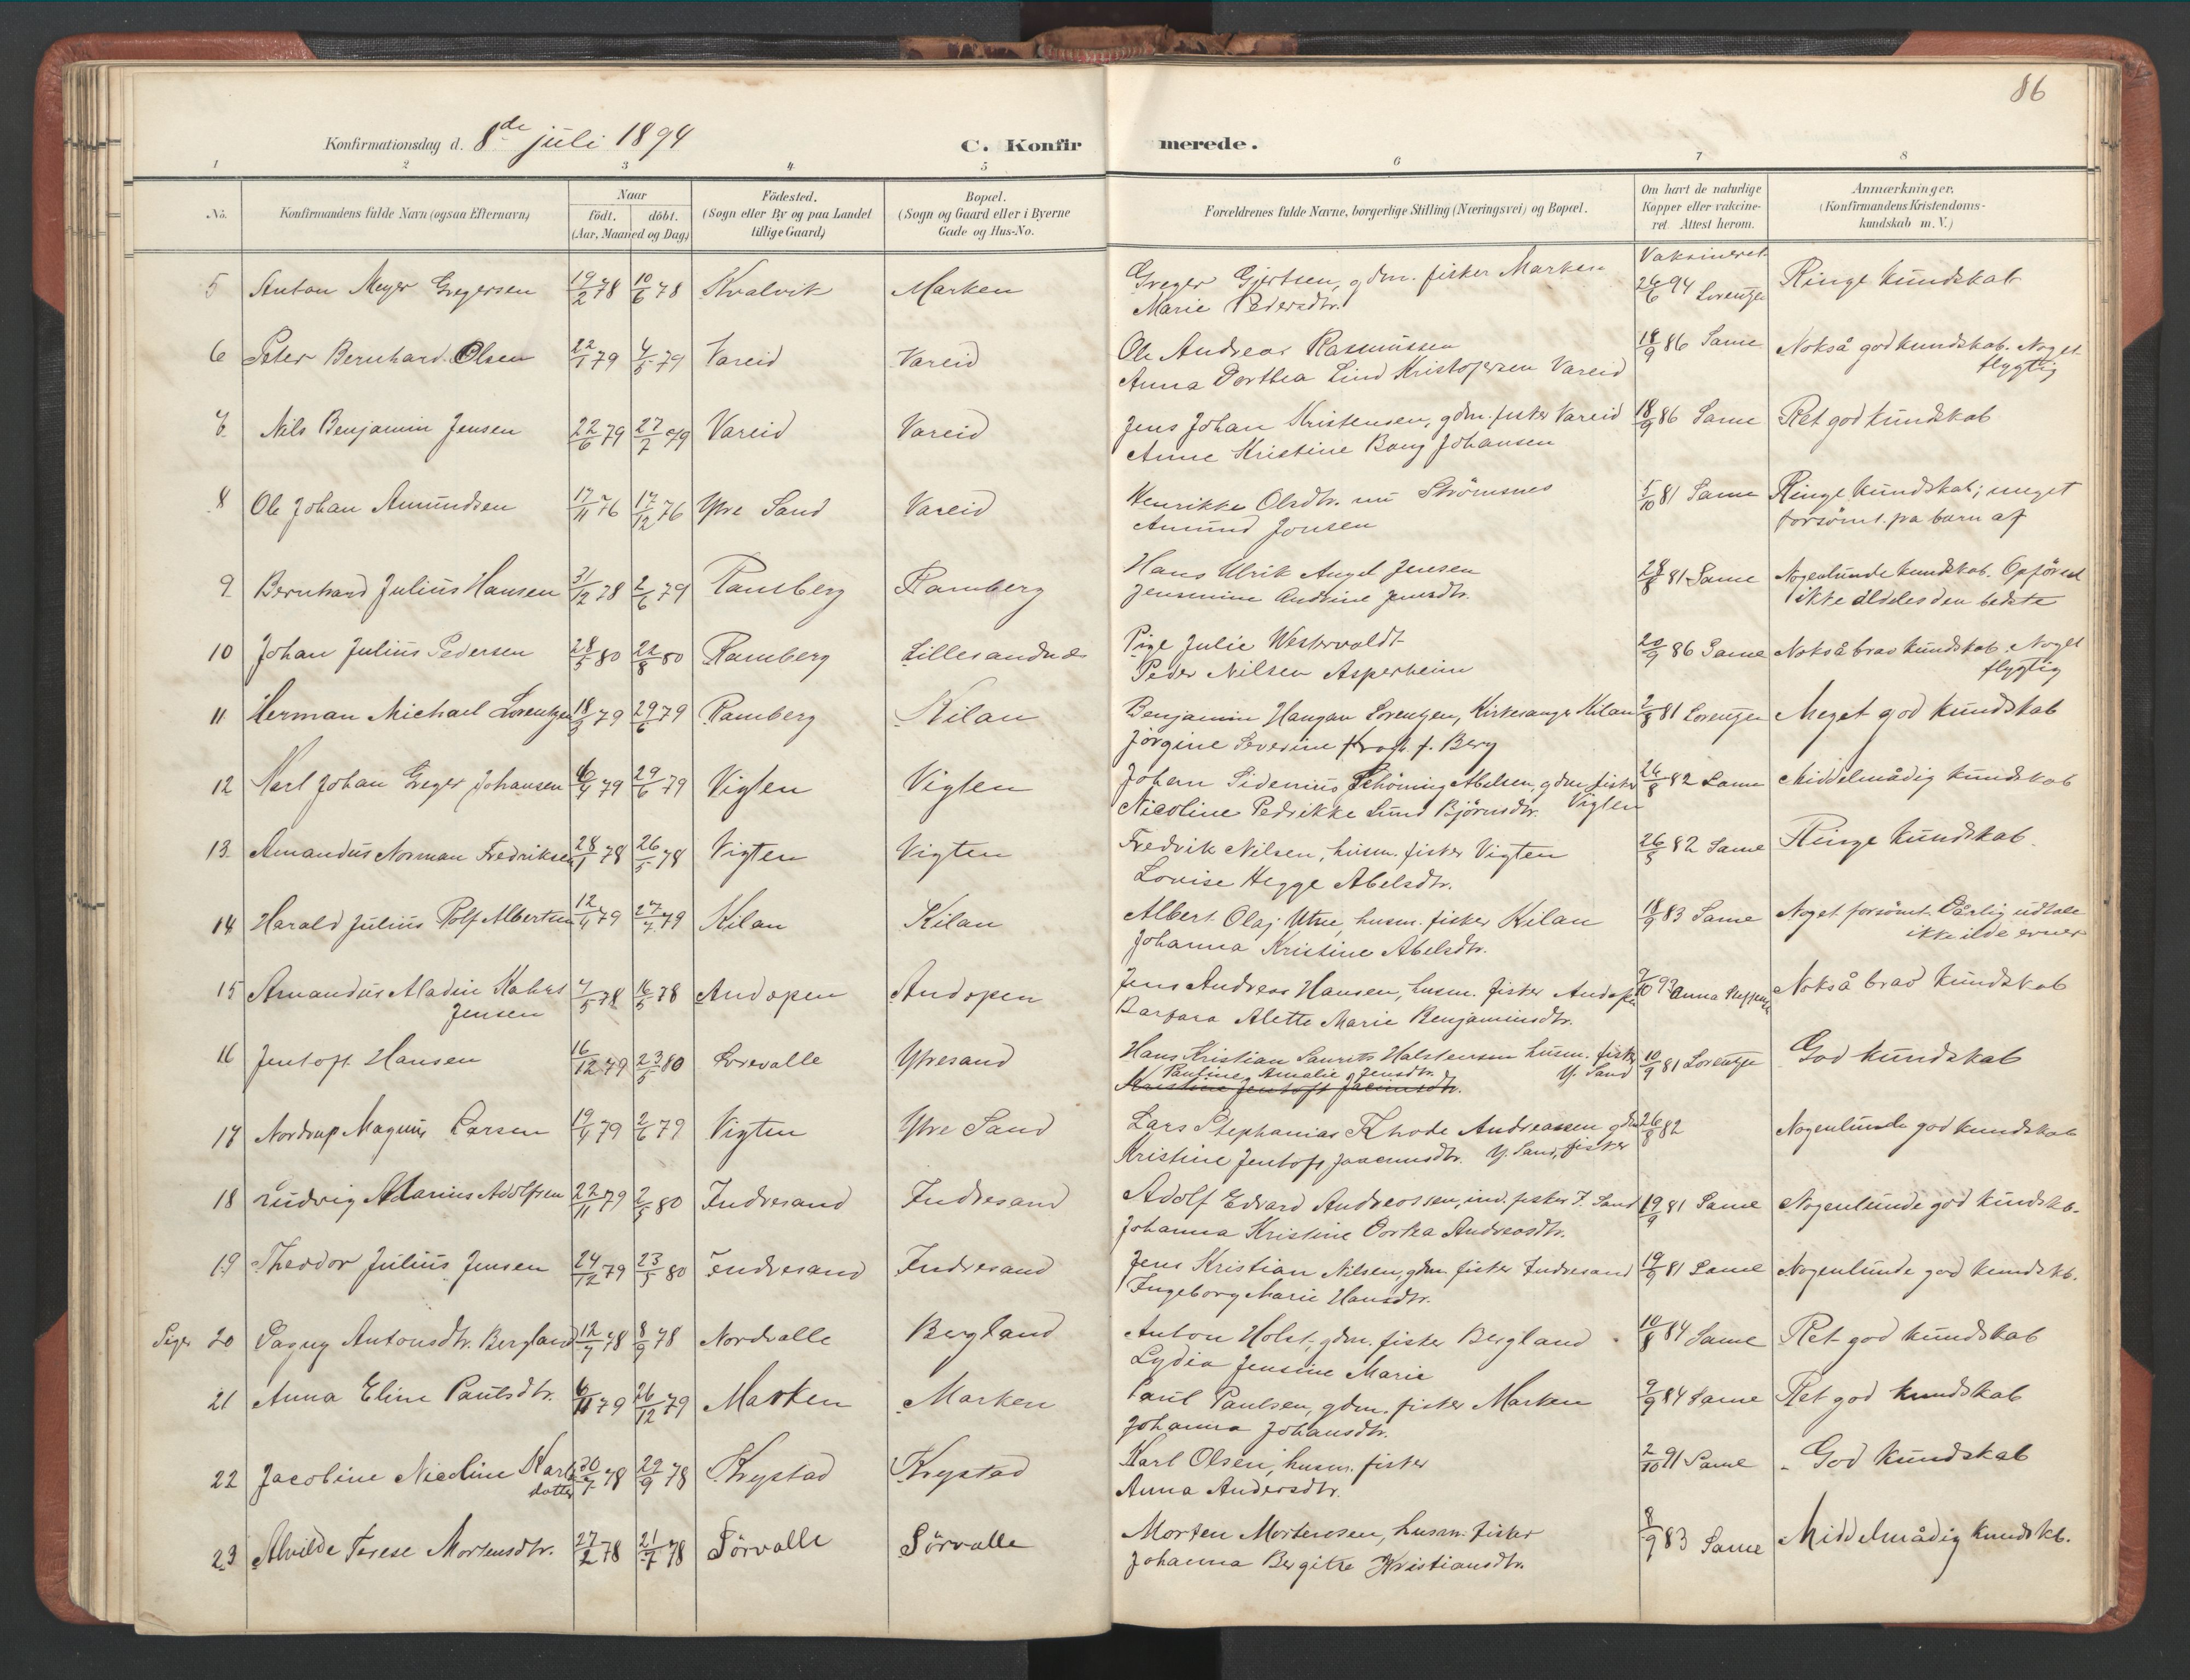 86
Konfirmationsdag d. 8de juli 1894
C. Konfirmerede.
1 2 3 4 5 6 7 8
No.
Konfirmandens fulde Navn (ogsaa Efternavn)
Naar
födt. döbt.
(Aar, Maaned og Dag)
Födested.
(Sogn eller By og paa Landet
tillige Gaard)
Bopæl.
(Sogn og Gaard eller i Byerne
Gade og Hus-No.
Forældrenes fulde Navne, borgerlige Stilling (Næringsvei) og Bopæl.
Om havt de naturlige
Kopper eller vakcine-
ret. Attest herom.
Anmærkninger.
(Konfirmandens Kristendoms-
kundskab m. V.)
Vaksineret
5 Anton Meyer Gregersen 19/2 78 10/6 78 Kvalvik Marken Greger Gjertsen, gdm. fisker Marken 26/6 94 Lorentzen Ringe kundskab
Marie Pedersdtr.
6 Peter Bernhard Olsen 22/1 79 4/5 79 Vareid Vareid Ole Andreas Rasmussen 18/9 86 Same Nokså god kundskab. Noget
Anna Dorthea Lind Kristofersen Vareid flygtig
7 Nils Benjamin Jensen 22/6 79 27/7 79 Vareid Vareid Jens Johan Kristensen, gdm. fisker Vareid 18/9 86 Same Ret god kundskab
Anne Kristine Bang Johansen
8 Ole Johan Amundsen 17/11 76 17/12 76 Yvre Sand Vareid Henrikke Olsdtr. nu Strömsnes 5/10 81 Same Ringe kundskab; meget
Amund Jonsen forsömt fra barn af
9 Bernhard Julius Hansen 31/12 78 2/6 79 Ramberg Ramberg Hans Ulrik Angel Jensen 28/8 81 Same Nogenlunde kundskab. Opförsel
Jensmine Andrine Jensdtr. ikke aldeles den bedste
10 Johan Julius Pedersen 28/5 80 22/8 80 Ramberg Lillesandnes Pige Julie Westervaldt 20/9 86 Same Nokså brav kundskab. Noget
Peder Nilsen Asperheim flygtig
11 Herman Michael Lorentzen 18/3 79 29/6 79 Ramberg Kilan Benjamin Haugan Lorentzen, Kirkesanger Kilan 2/8 81 Lorentzen Meget god kundskab
Jörgine Severine f. Berg
12 Karl Johan Greger Johansen 6/4 79 29/6 79 Vigten Vigten Johan Sidenius Schöning Abelsen, gdm. fisker 26/8 82 Same Middelmådig kundskab
Nicoline Pedrikke Lund Björnsdtr. Vigten
13 Amandus Norman Fredriksen 28/1 78 26/5 78 Vigten Vigten Fredrik Nilsen, husm. fisker Vigten 26/5 82 Same Ringe kundskab.
Lovise Hegge Abelsdtr.
14 Harald Julius Rolf Albertsen 12/4 79 27/7 79 Kilan Kilan Albert Olaj Utne, husm. fisker Kilan 18/9 83 Same Noget forsömt. Dårlig udtale
Johanna Kristine Abelsdtr. ikke ilde evner
15 Amandus Madin Kahrs 4/5 78 16/5 78 Andopen Andopen Jens Andreas Hansen, husm. fisker Andopen 7/10 93 Anna Nokså brav kundskab
Jensen Barbara Alette Marie Benjaminsdtr.
16 Jentoft Hansen 16/12 79 23/5 80 Sörevalle Yvresand Hans Kristian Laurits Halstensen husm. fisker 10/9 81 Lorentzen God kundskab
Pauline Amalie Jensdtr. Y. Sand
Kristine Jentoft Jacimsdtr.
17 Nordrup Magnus Larsen 19/4 79 2/6 79 Vigten Yvre Sand Lars Stephanias Rhode Andreassen gdm. 26/8 82 Nogenlunde god kundskab
Kristine Jentoft Joacimsdtr. Y. Sand, fisker
18 Ludvig Marius Adolfsen 22/11 79 2/5 80 Indresand Indresand Adolf Edvard Andreassen, ind. fisker I. Sand 19/9 81 Same Nogenlunde god kundskb.
Johanna Kristine Dorthea Andreasdtr.
19 Theodor Julius Jensen 24/12 79 23/5 80 Indresand Indresand Jens Kristian Nilsen, gdm. fisker Indresand 19/9 81 Same Nogenlunde god kundskb.
Ingeborg Marie Hansdtr.
Piger 20 Dagny Antonsdtr. Bergland 12/7 78 8/9 78 Nordvalle Bergland Anton Holst, gdm. fisker Bergland 10/8 84 Same Ret god kundskab
Lydia Jensine Marie
21 Anna Eline Paulsdtr. 6/11 79 26/12 79 Marken Marken Paul Paulsen, gdm. fisker Marken 9/9 84 Same Ret god kundskab
Johanna Johansdtr.
22 Jacobine Nicoline Karls 30/7 78 29/9 78 Krystad Krystad Karl Olsen, husm. fisker 2/10 91 Same God kundskab
datter Anna Andersdtr.
23 Alvilde Terese Mortensdtr. 27/2 78 21/7 78 Sörvalle Sörvalle Morten Mortensen, husm. fisker 8/9 83 Same Middelmådig kundskb.
Johanna Bergitte Kristiansdtr.